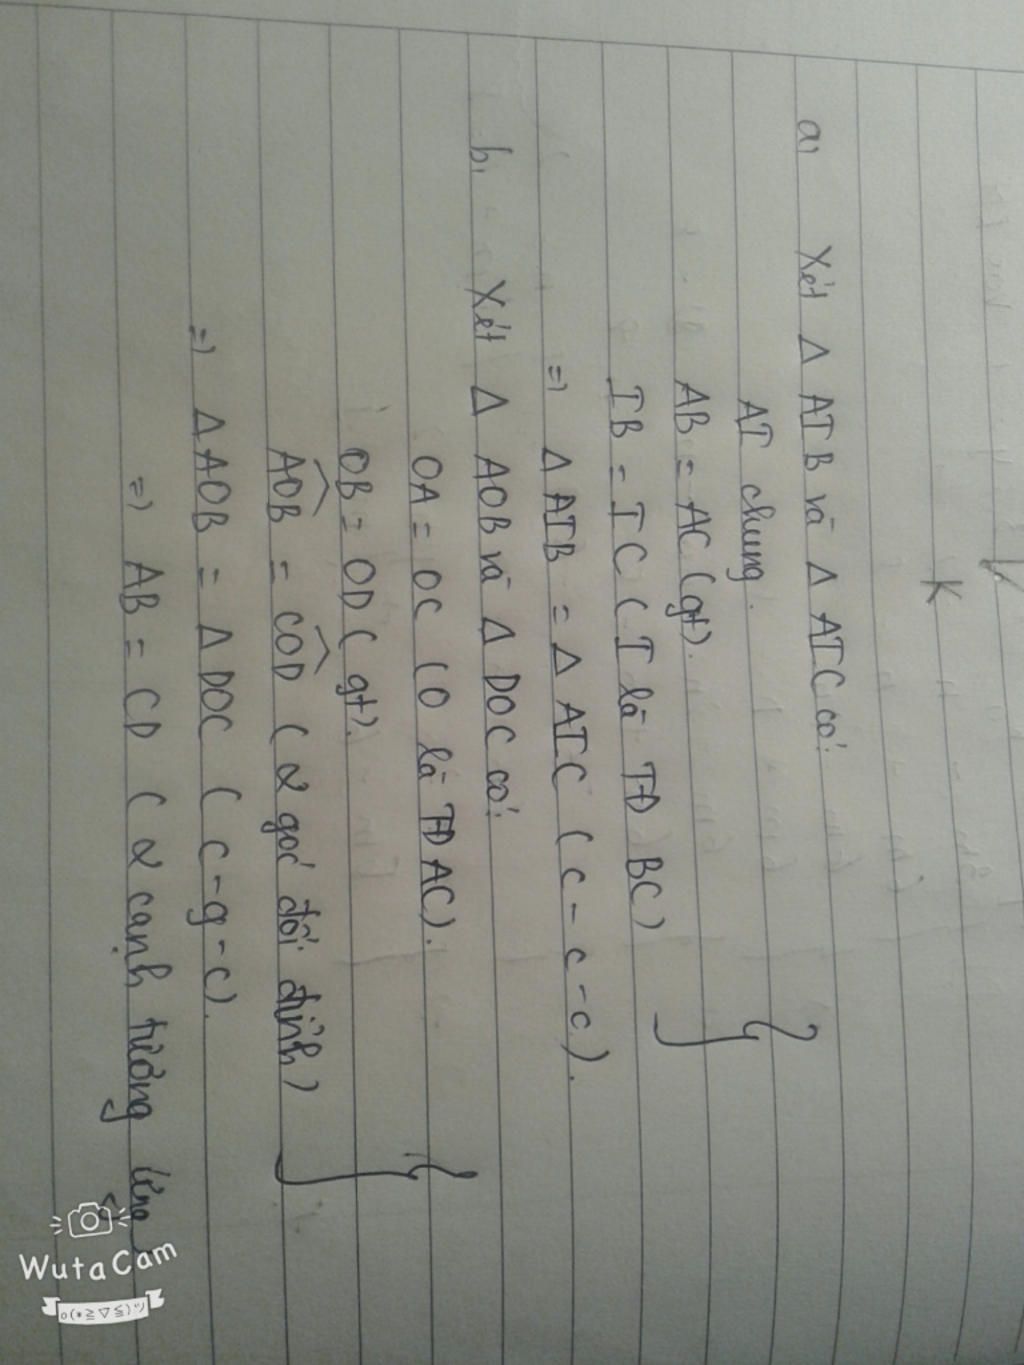 K
a, Xét Δ AIB và Δ AIC có:
AI chung.
AB = AC (gt).
IB = IC ( I là TĐ BC)
=) Δ AIB = Δ AIC ( c - c - c ).
b, Xét Δ AOB và Δ DOC có:
OA = OC ( O là TĐ AC).
OB = OD ( gt).
AOB = COD ( 2 góc đối đỉnh )
=) Δ AOB = Δ DOC ( c - g - c ).
=) AB = CD ( 2 cạnh tương ứng
WutaCam
o(*≧▽≦)ツ